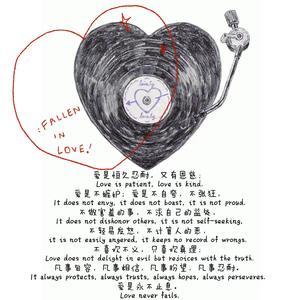 :FALLEN
IN
LOVE!
lovely
lovely
爱是恒久忍耐，又有恩慈；
Love is patient, love is kind.
爱是不嫉妒；爱是不自夸，不张狂，
It does not envy, it does not boast, it is not proud.
不做害羞的事，不求自己的益处，
It does not dishonor others, it is not self-seeking,
不轻易发怒，不计算人的恶，
it is not easily angered, it keeps no record of wrongs.
不喜欢不义，只喜欢真理；
Love does not delight in evil but rejoices with the truth.
凡事包容，凡事相信，凡事盼望，凡事忍耐。
It always protects, always trusts, always hopes, always perseveres.
爱是永不止息。
Love never fails.